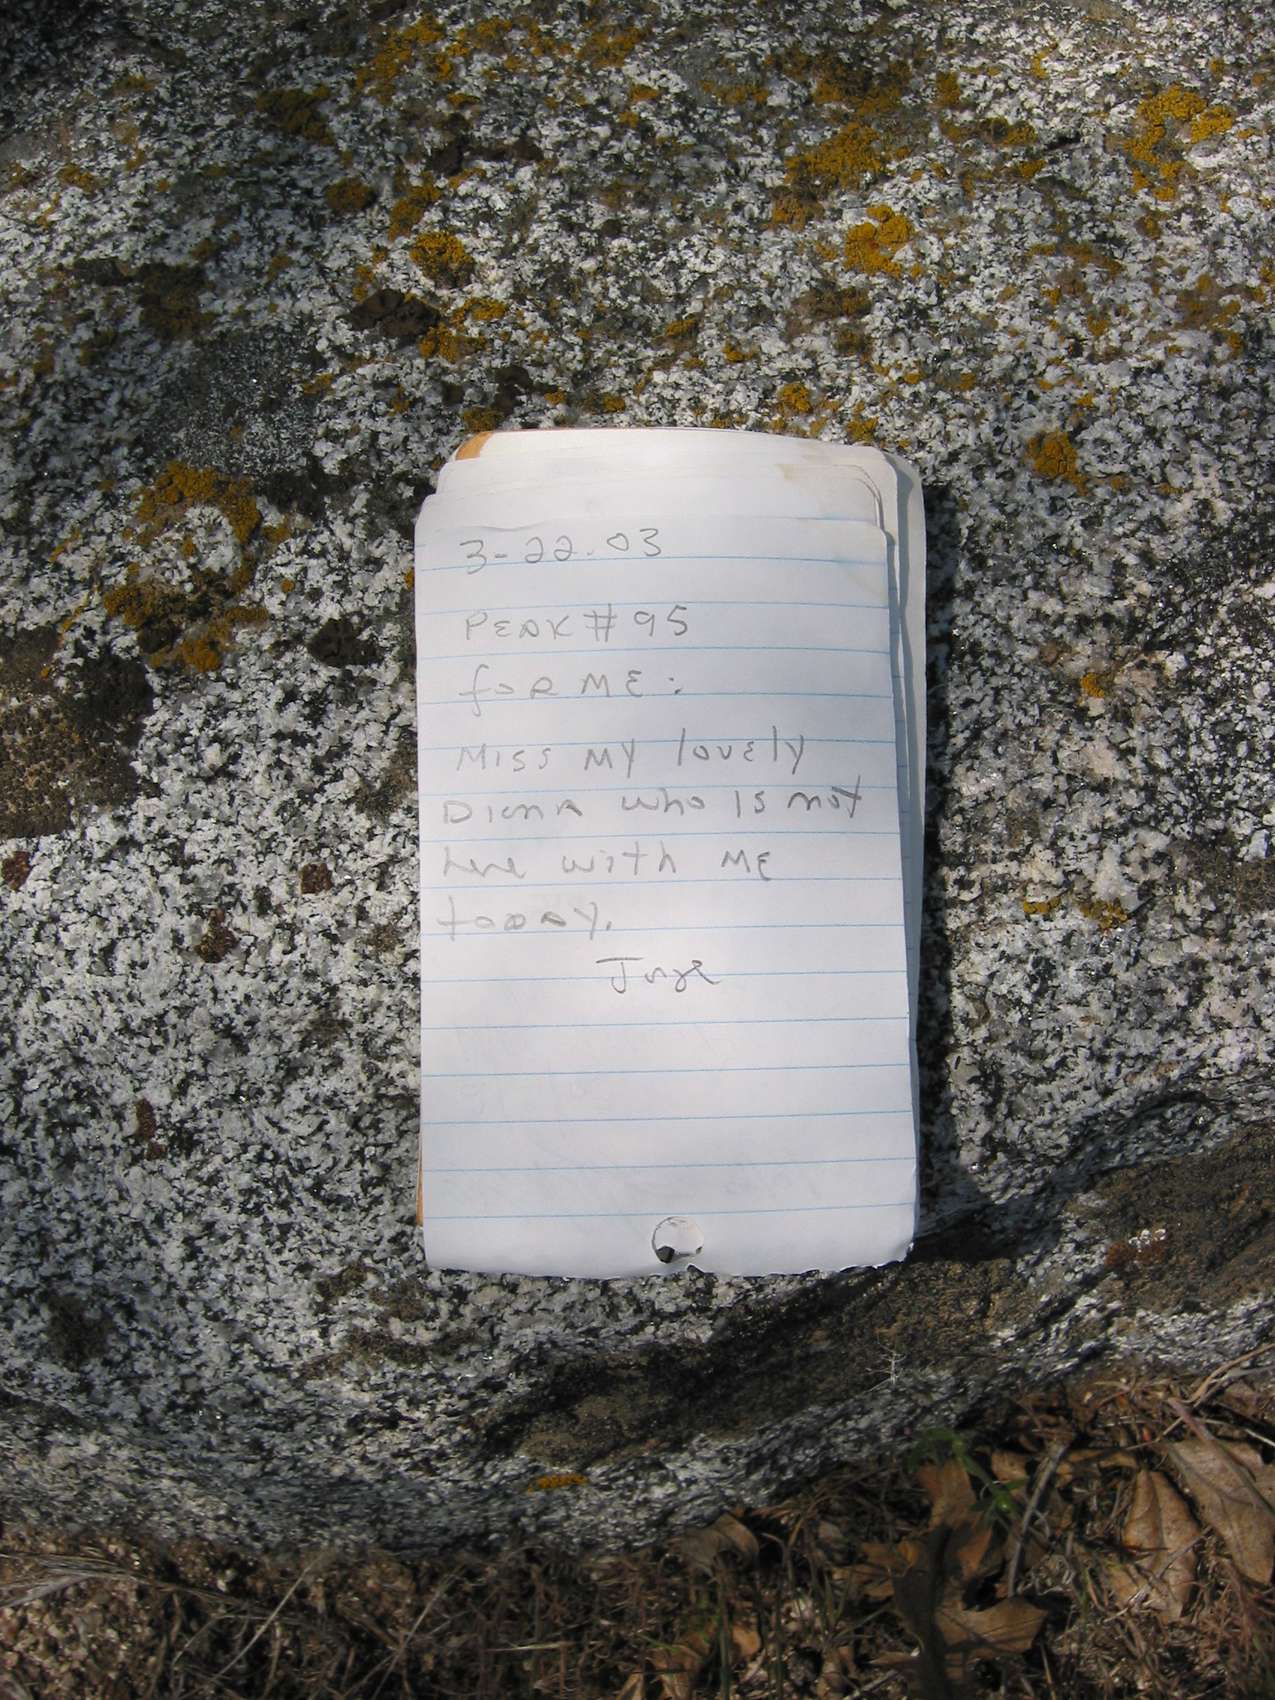 3-22.03
PEAK # 95
for ME:
Miss My lovely
Diana who is not
here with ME
today.